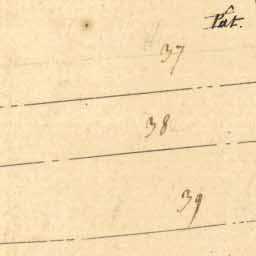 Pat.
37
38
39